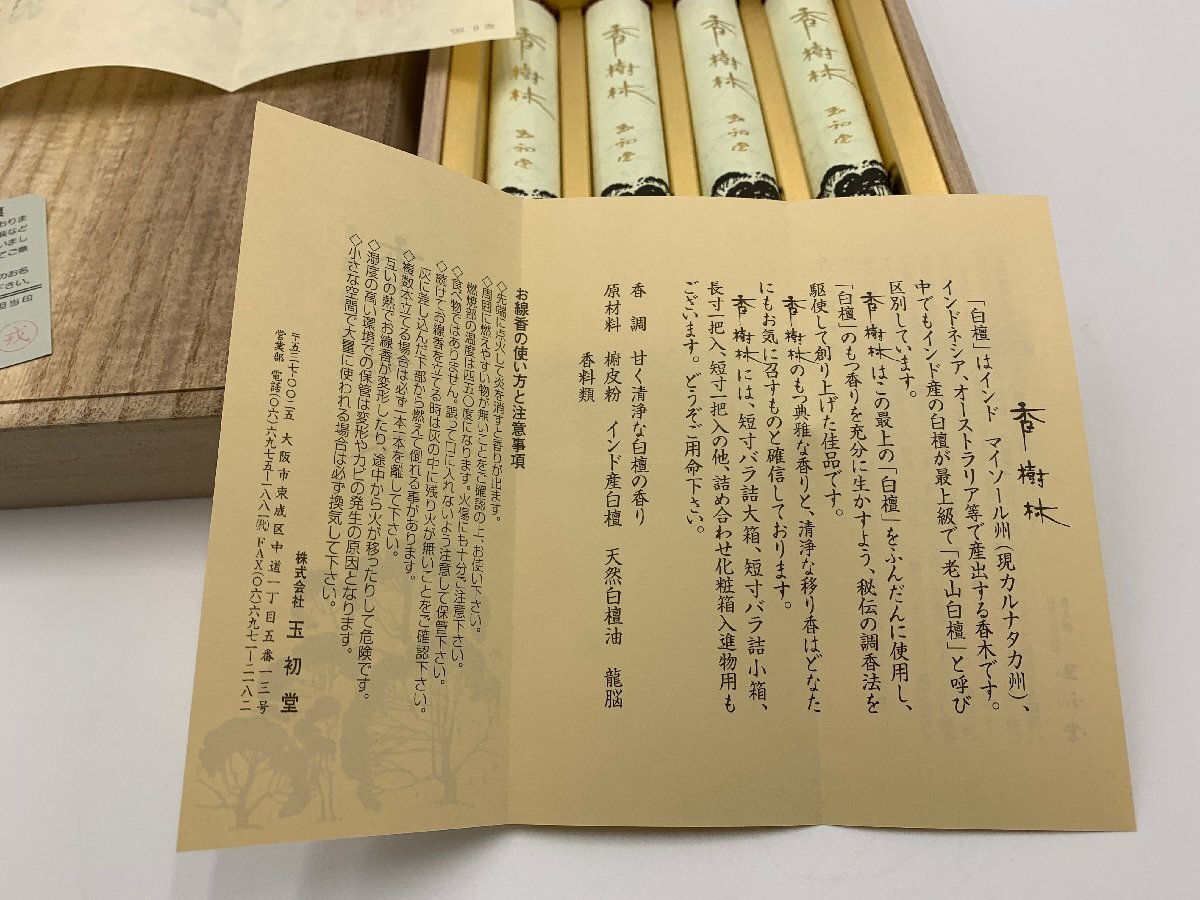 香樹林
「白檀」はインド マイソール州(現カルナタカ州)、
インドネシア、オーストラリア等で産出する香木です。
中でもインド産の白檀が最上級で「老山白檀」と呼び
区別しています。
香樹林はこの最上の「白檀」をふんだんに使用し、
「白檀」のもつ香りを充分に生かすよう、秘伝の調香法を
駆使して創り上げた佳品です。
香樹林のもつ典雅な香りと、清浄な移り香はどなた
にもお気に召すものと確信しております。
香樹林には、短寸バラ詰大箱、短寸バラ詰小箱、
長寸一把入、短寸一把入の他、詰め合わせ化粧箱入進物用も
ございます。どうぞご用命下さい。
香 調 甘く清浄な白檀の香り
原材料 椨皮粉 インド産白檀 天然白檀油 龍脳
香料類
お線香の使い方と注意事項
◇先端に点火して炎を消すと香りが出ます。
◇周囲に燃えやすい物が無いことをご確認の上、お使い下さい。
燃焼部の温度は四五〇度になります。火傷にも十分ご注意下さい。
◇食べ物ではありません。誤って口に入れないよう注意して保管下さい。
◇続けてお線香を立てる時は灰の中に残り火が無いことをご確認下さい。
灰に差し込んだ下部から燃えて倒れる事があります。
◇複数本立てる場合は必ず一本一本を離して下さい。
互いの熱でお線香が変形したり、途中から火が移ったりして危険です。
◇湿度の高い環境での保管は変形やカビの発生の原因となります。
◇小さな空間で大量に使われる場合は必ず換気して下さい。
株式会社 玉初堂
〒五三七-〇〇二五 大阪市東成区中道一丁目五番一三号
営業部 電話(〇六)六九七五-一八八一(代) FAX(〇六)六九七一-二一八二
香樹林 玉初堂
香樹林 玉初堂
香樹林 玉初堂
香樹林 玉初堂